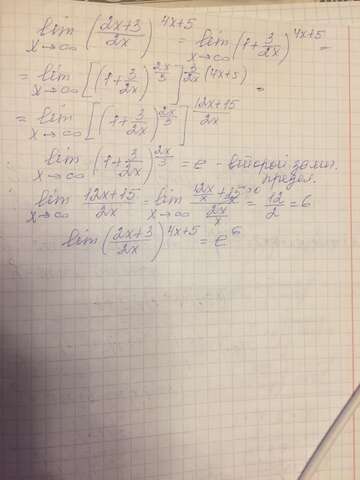 lim x→∞ ((2x+3)/2x)^(4x+5) = lim x→∞ (1+3/2x)^(4x+5) =
= lim x→∞ [(1+3/2x)^(2x/3)]^(3/2x (4x+5)) =
= lim x→∞ [(1+3/2x)^(2x/3)]^((12x+15)/2x)
lim x→∞ (1+3/2x)^(2x/3) = e - второй зам.
предел.
lim x→∞ (12x+15)/2x = lim x→∞ (12x/x + 15/x→0)/(2x/x) = 12/2 = 6
lim ((2x+3)/2x)^(4x+5) = e^6